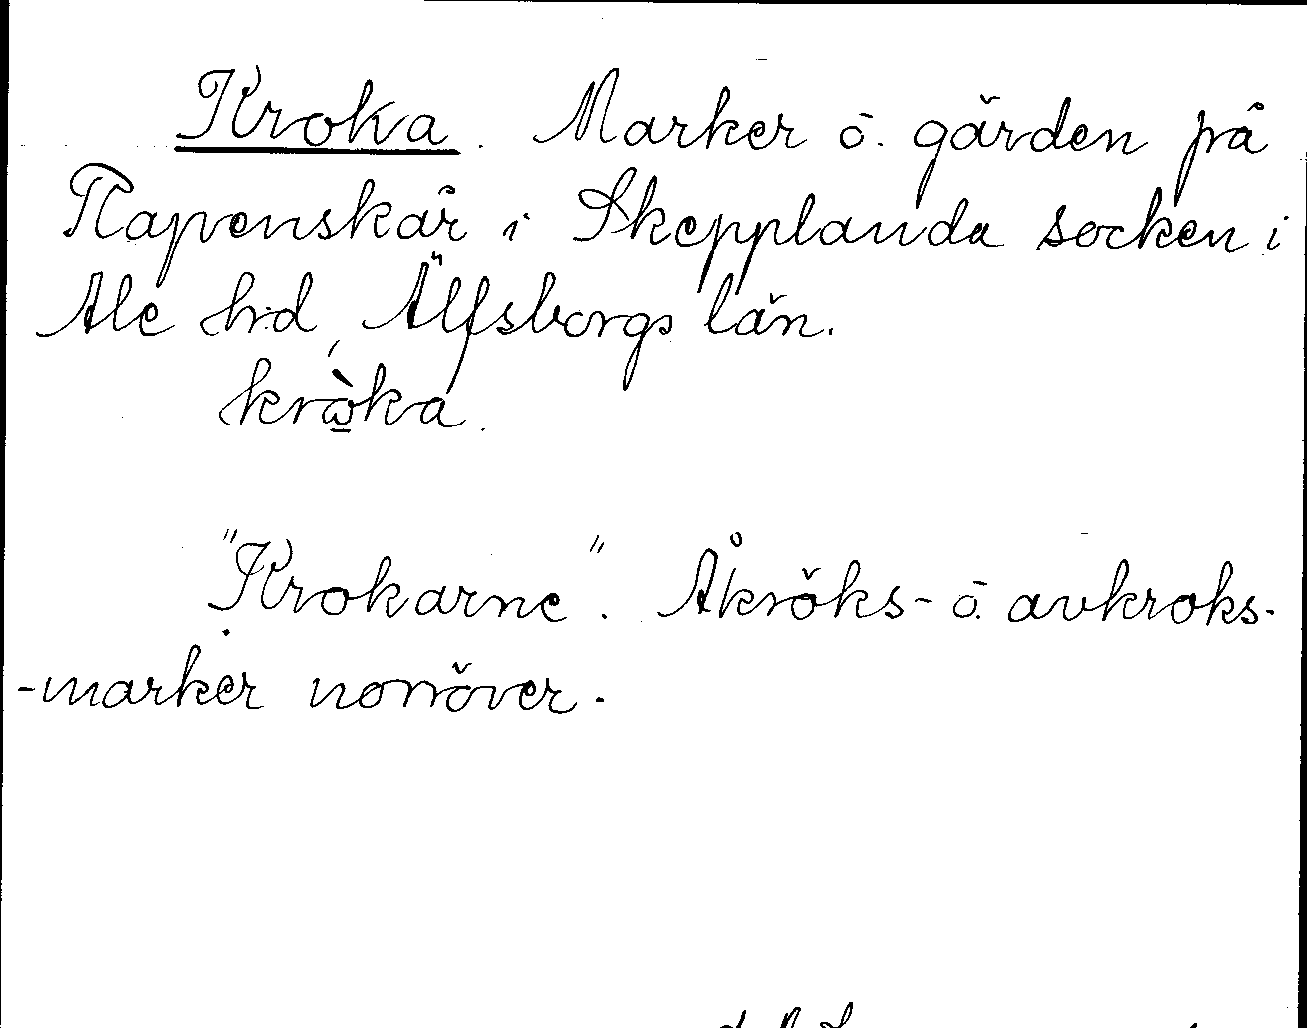 Kroka. Marker ö. gärden på
Rapenskår i Skepplanda socken i
Ale hd, Älfsborgs län.
kròka.
"Krokarne". Åkröks- ö. avkroks-
-marker norröver.